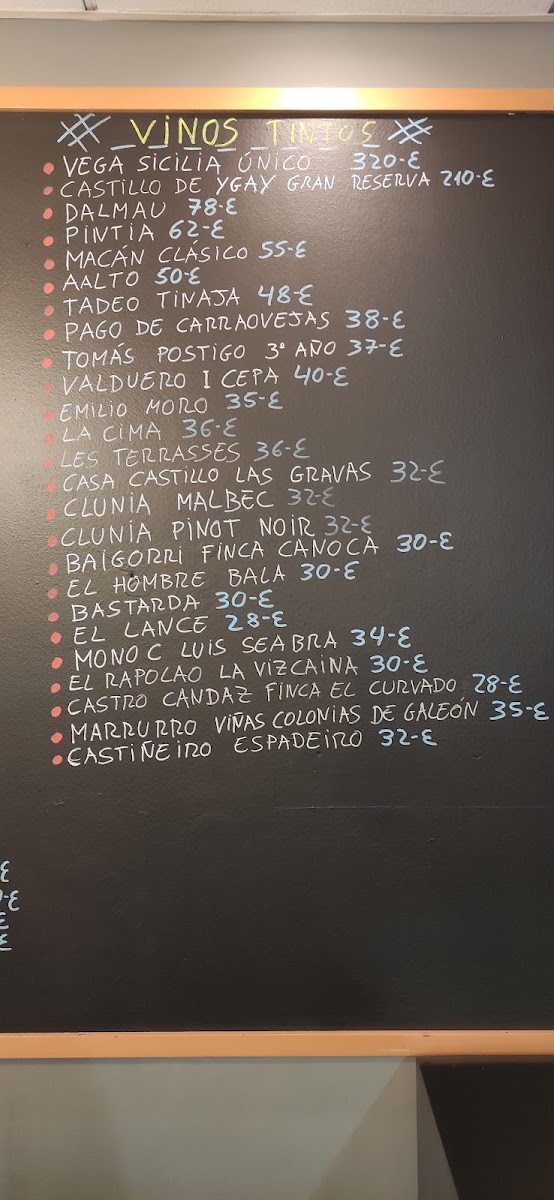 VINOS TINTOS
VEGA SICILIA ÚNICO 320-€
CASTILLO DE YGAY GRAN RESERVA 210-€
DALMAU 78-€
PINTIA 62-€
MACÁN CLÁSICO 55-€
AALTO 50-€
TADEO TINAJA 48-€
PAGO DE CARRAOVEJAS 38-€
TOMÁS POSTIGO 3º AÑO 37-€
VALDUERO I CEPA 40-€
EMILIO MORO 35-€
LA CIMA 36-€
LES TERRASSES 36-€
CASA CASTILLO LAS GRAVAS 32-€
CLUNIA MALBEC 32-€
CLUNIA PINOT NOIR 32-€
BAIGORRI FINCA CANOCA 30-€
EL HOMBRE BALA 30-€
BASTARDA 30-€
EL LANCE 28-€
MONO C LUIS SEABRA 34-€
EL RAPOLAO LA VIZCAINA 30-€
CASTRO CANDAZ FINCA EL CURVADO 28-€
MARRURRO VIÑAS COLONIAS DE GALEÓN 35-€
CASTIÑEIRO ESPADEIRO 32-€